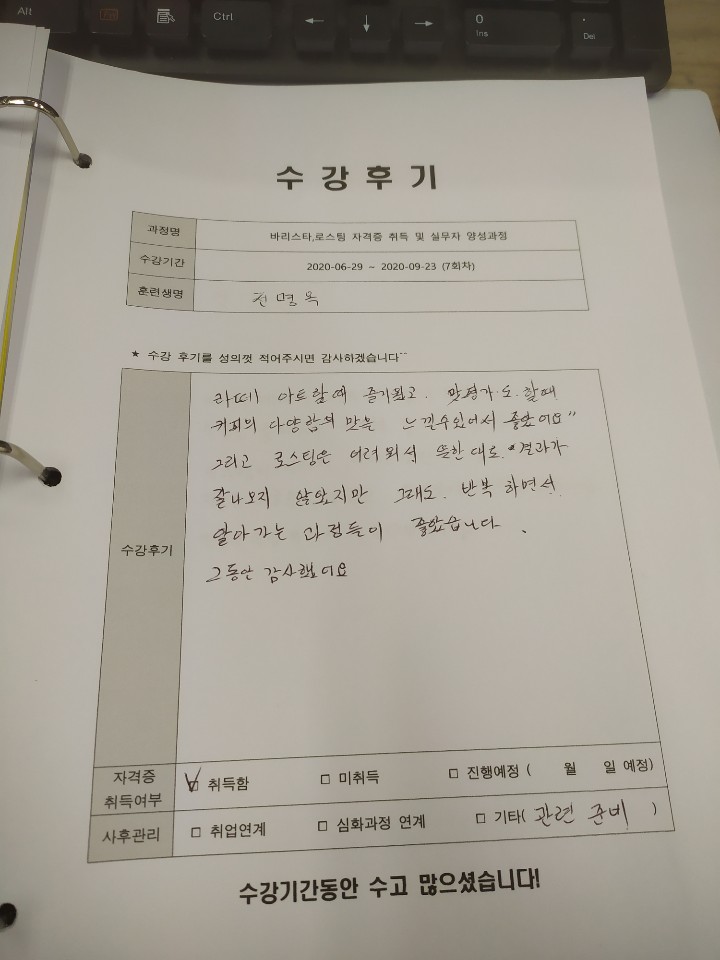 Alt
Ctrl
←
↓
→
0
Ins
.
Del
수 강 후 기
과정명 바리스타,로스팅 자격증 취득 및 실무자 양성과정
수강기간 2020-06-29 ~ 2020-09-23 (7회차)
훈련생명 전명옥
★ 수강 후기를 성의껏 적어주시면 감사하겠습니다~~
수강후기
라떼 아트할때 즐거웠고. 맛평가도 할때
커피의 다양함의 맛을 느낄수있어서 좋았어요"
그리고 로스팅은 어려워서 뜻한 대로 결과가
잘나오지 않았지만 그래도. 반복 하면서
알아가는 과정들이 좋았습니다.
그동안 감사했어요
자격증 취득여부 ☑ 취득함 □ 미취득 □ 진행예정 ( 월 일 예정)
사후관리 □ 취업연계 □ 심화과정 연계 □ 기타( 관련 준비 )
수강기간동안 수고 많으셨습니다!